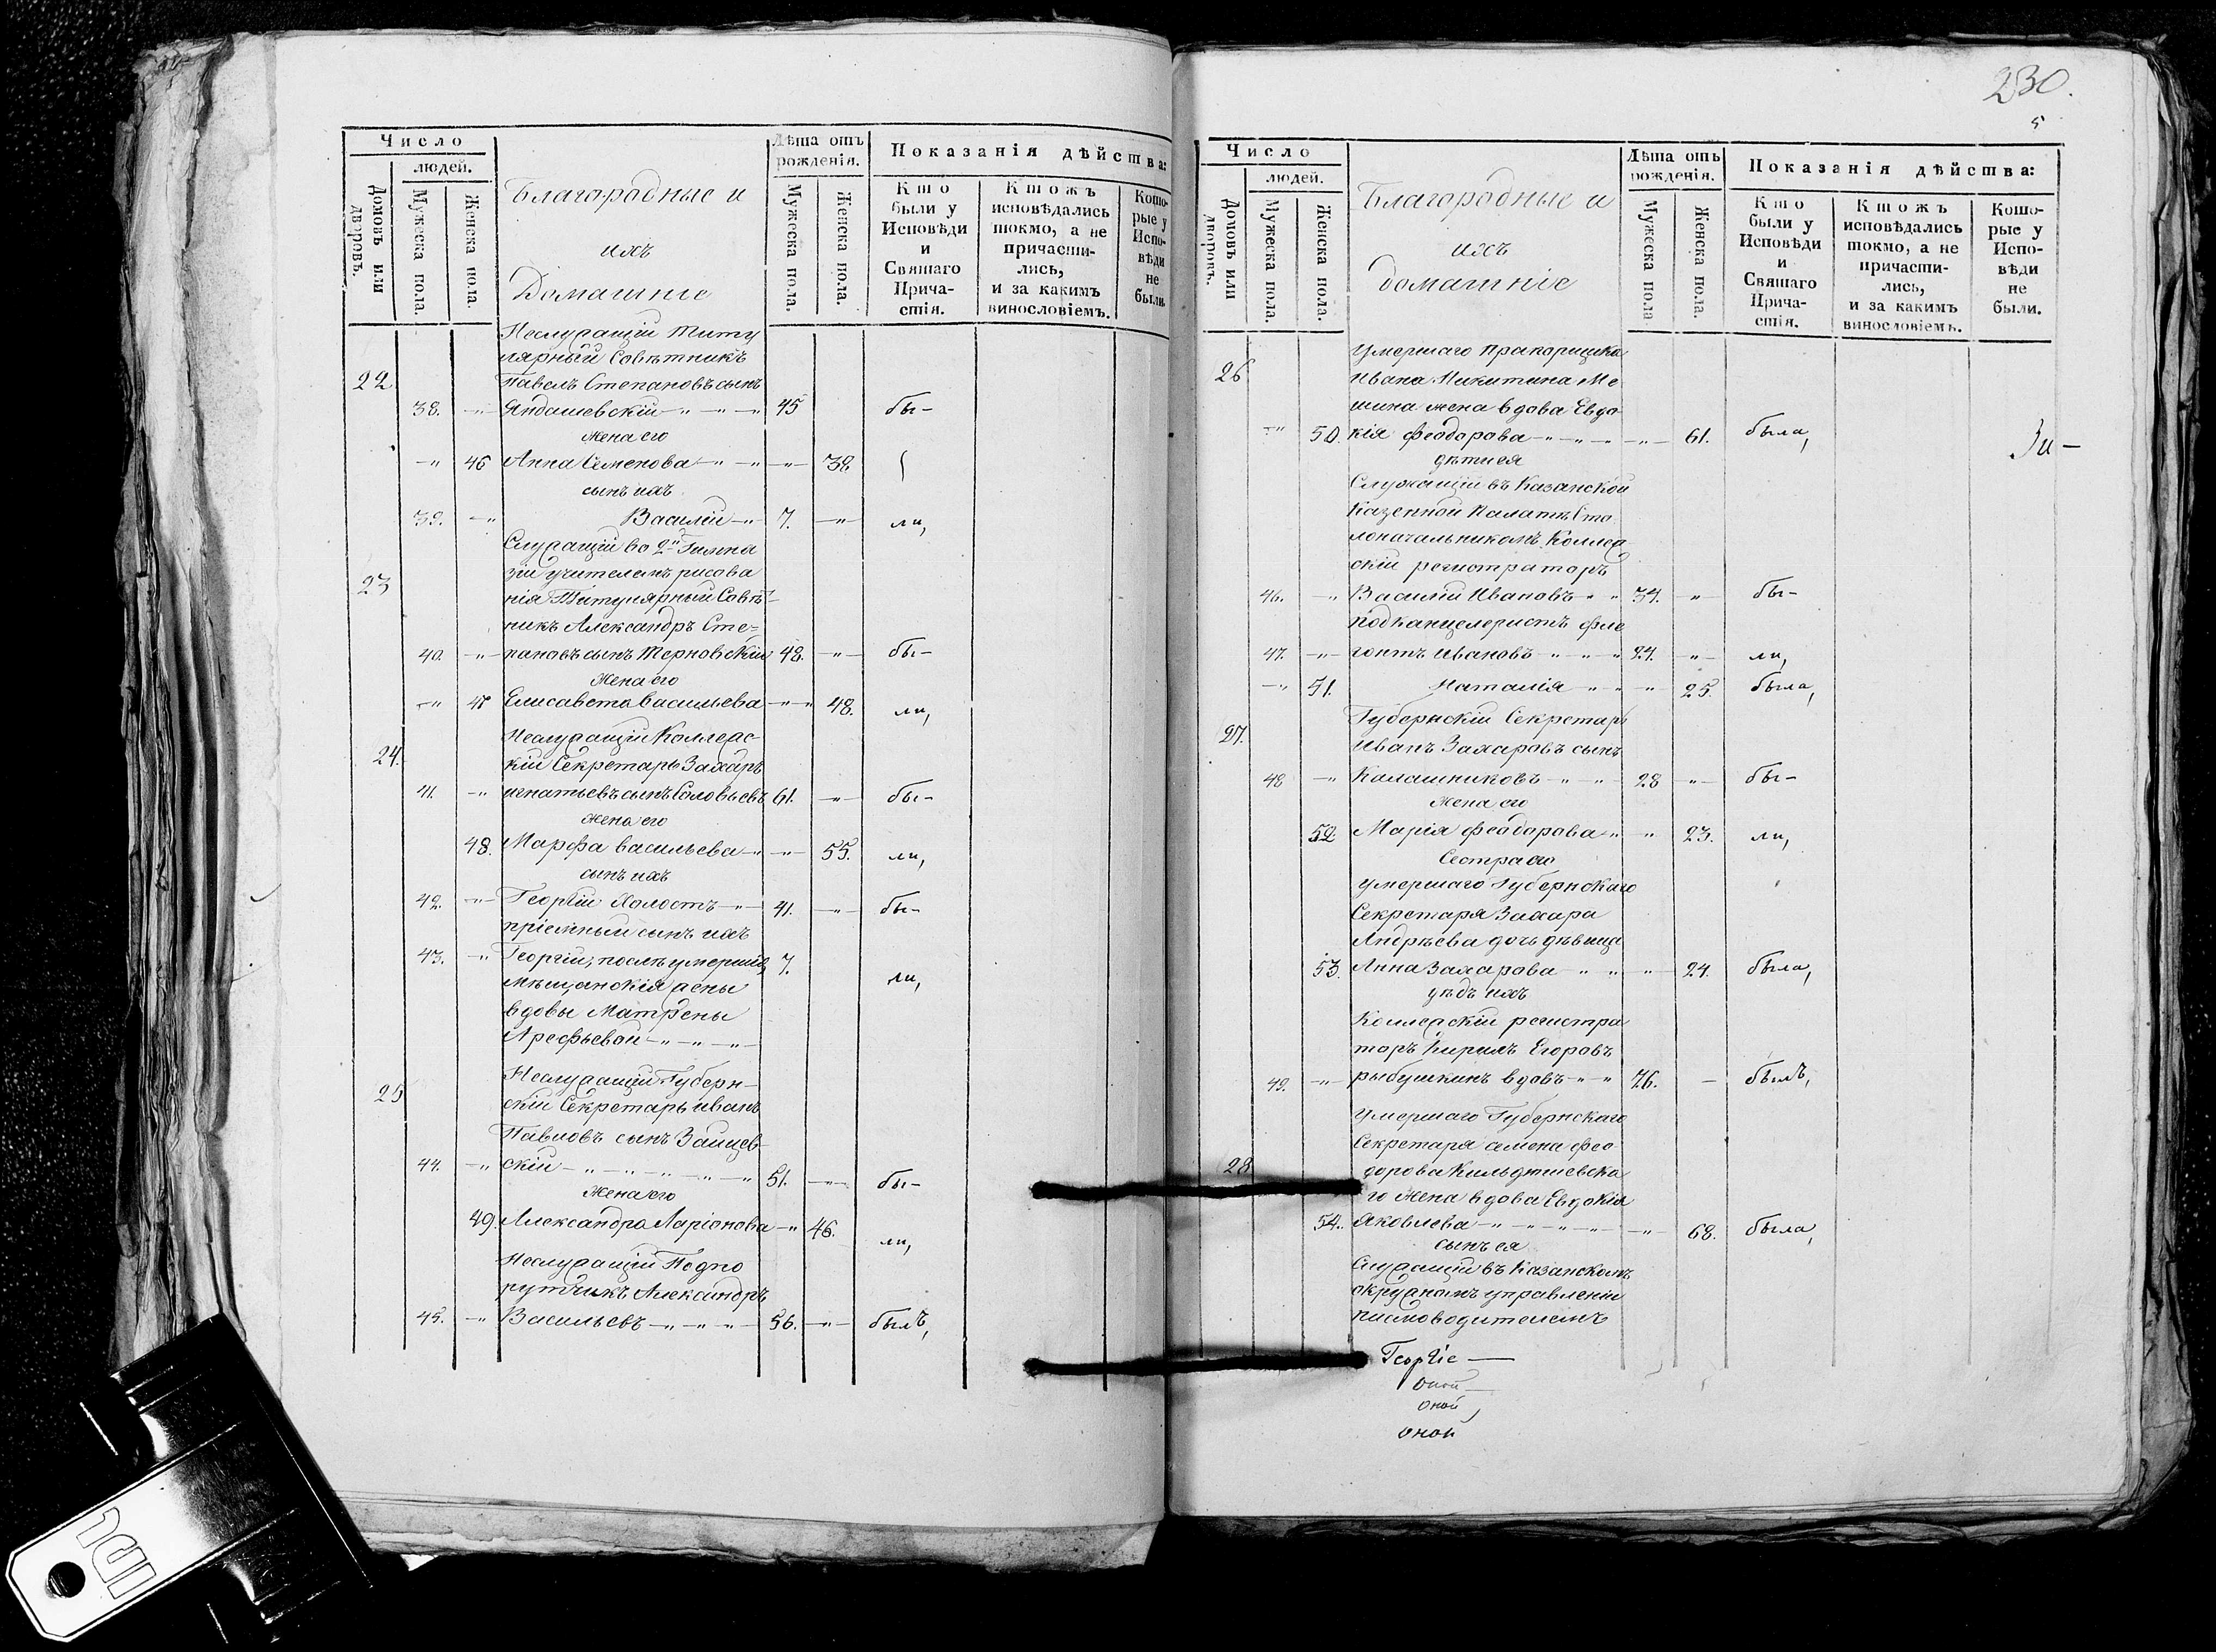 Число
людей.
Домовъ или дворовъ.
Мужеска пола.
Женска пола.
Благородные и
ихъ
Домашніе
Лѣта отъ рожденія.
Мужеска пола.
Женска пола.
Показанія дѣйства:
Кто были у Исповѣди и Святаго Прича-стія.
Ктожъ исповѣдались токмо, а не причасти-лись, и за какимъ винословіемъ.
Кото-рые у Испо-вѣди не были.
Неслужащій Титу
лярный Совѣтникъ
22 Павелъ Степановъ сынъ
38. -"- Яндашевскій -"-"-" 45 бы-
жена его
-" 46 Анна Семенова -"-" -"- 38
сынъ ихъ
39. -" Василій -" 7. -"- ли,
Служащій во 2й Гимна
зіи учителемъ рисова
23 нія Титулярный Совѣт-
никъ Александръ Сте=
40. -"- пановъ сынъ Терновскій 48. -"- бы-
Жена его
-" 47 Елисавета Васильева -"-" 48. ли,
Неслужащій Коллежс-
24. кій Секретарь Захаръ
41. -" Игнатьевъ сынъ Соловьевъ 61. -"- бы-
жена его
48. Марфа Васильева -" -"- 55. ли,
сынъ ихъ
42. -"- Георгій Холостъ -"- 41. -"- бы-
пріемный сынъ ихъ
43. -" Георгій, послѣ умершія 7. ли,
мѣщанскія жены
вдовы Матрены
Арефьевой -"-"-"-
Неслужащій Губерн-
25 скій Секретарь Иванъ
Павловъ сынъ Зайцев-
44. -" скій -"-"-"-"-" 51. -"- бы-
Жена его
49. Александра Ларіонова -" 46. ли,
Неслужащій Подпо
рутчикъ Александръ
45. -" Васильевъ -"-"-"- 56. -"- былъ,
230.
5
Число
людей.
Домовъ или дворовъ.
Мужеска пола.
Женска пола.
Благородные и
ихъ
домашніе
Лѣта отъ рожденія.
Мужеска пола
Женска пола.
Показанія дѣйства:
Кто были у Исповѣди и Святаго Прича-стія.
Ктожъ исповѣдались токмо, а не причасти-лись, и за какимъ винословіемъ.
Кото-рые у Испо-вѣди не были.
Умершаго Прапорщика
26 Ивана Никитина Ме
шина жена вдова Евдо
-" 50. кія Феодорова -"-"- -"- 61. была,
дѣти ея
Служащій въ Казанской
Казенной Палатѣ Сто
лоначальникомъ Коллеж
скій регистраторъ
46. -" Василій Ивановъ " " 34. " бы-
Подканцеляристъ Фле
47. -"- гонтъ Ивановъ " " " 24. " ли,
-" 51. Наталія " " " 25. была,
Губернскій Секретарь
27. Иванъ Захаровъ сынъ
48 -" Калашниковъ -"-" 28 " бы-
Жена его
52. Марія Феодорова " " 23. ли,
Сестра его
умершаго Губернскаго
Секретаря Захара
Андрѣева дочь дѣвица
53. Анна Захарова " " " 24. была,
дѣдъ ихъ
Коллежскій регистра
торъ Кирилъ Егоровъ
49. -"- рыбушкинъ вдовъ -"-" 76. - былъ,
Умершаго Губернскаго
Секретаря Семена Фео
28 дорова Кильдюшевска
го жена вдова Евдокія
54. Яковлева -"-"-"- -"- 68. была,
сынъ ея
Служащій въ Казанскомъ
окружномъ управленіи
писмоводителемъ
Георгіе-
оной
оной,
оной